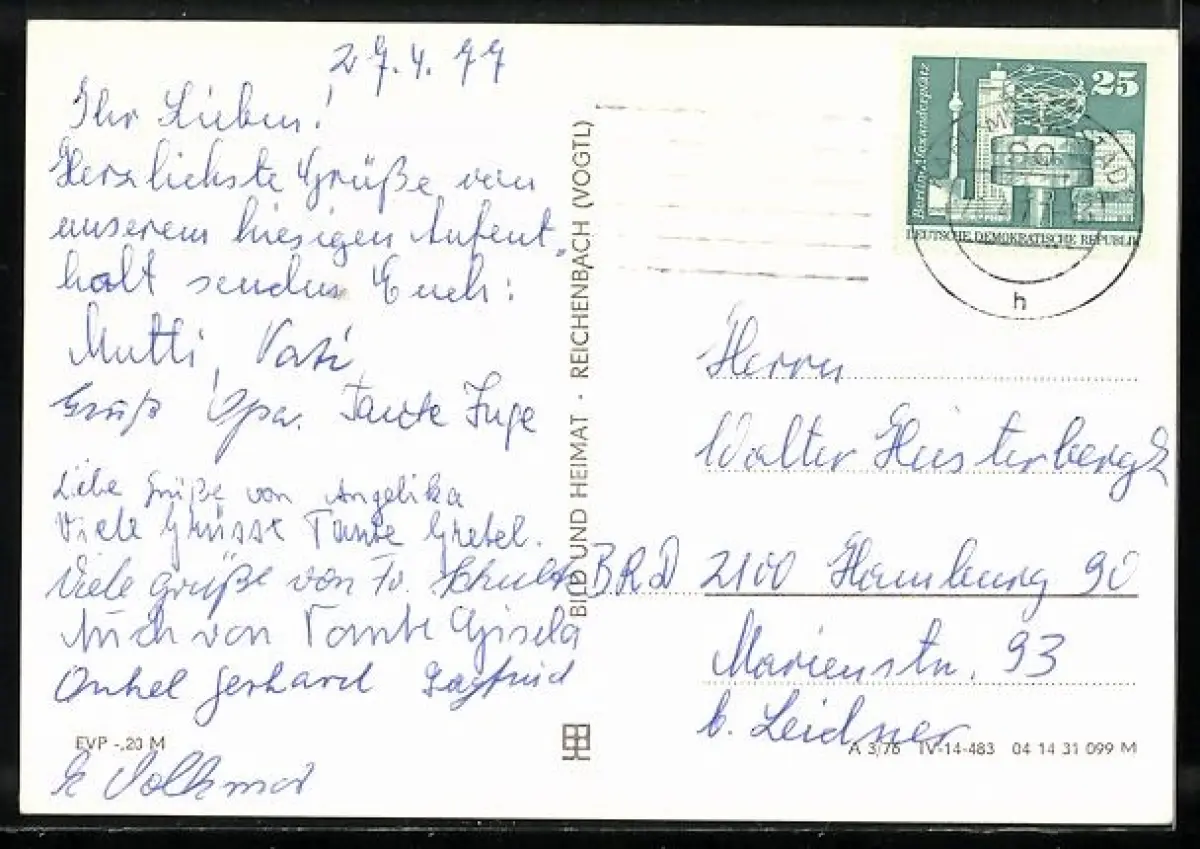 27.4.77
Ihr Lieben!
Herzlichste Grüße von
unserem hiesigen Aufent„
halt senden Euch:
Mutti, Vati
Gruß Opa. Tante Inge
Liebe Grüße von Angelika
Viele Grüsse Tante Gretel.
Viele Grüße von Fr.
Auch von Tante Gisela
Onkel Gerhard Siegfried
Volkmar
EVP -,20 M
BILD UND HEIMAT · REICHENBACH (VOGTL)
Berlin, Alexanderplatz
25
DEUTSCHE DEMOKRATISCHE REPUBLIK
h
Herrn
Walter
BRD 2100 Hamburg 90
Marienstr. 93
b. Leidner
A 3/76 IV-14-483 04 14 31 099 M